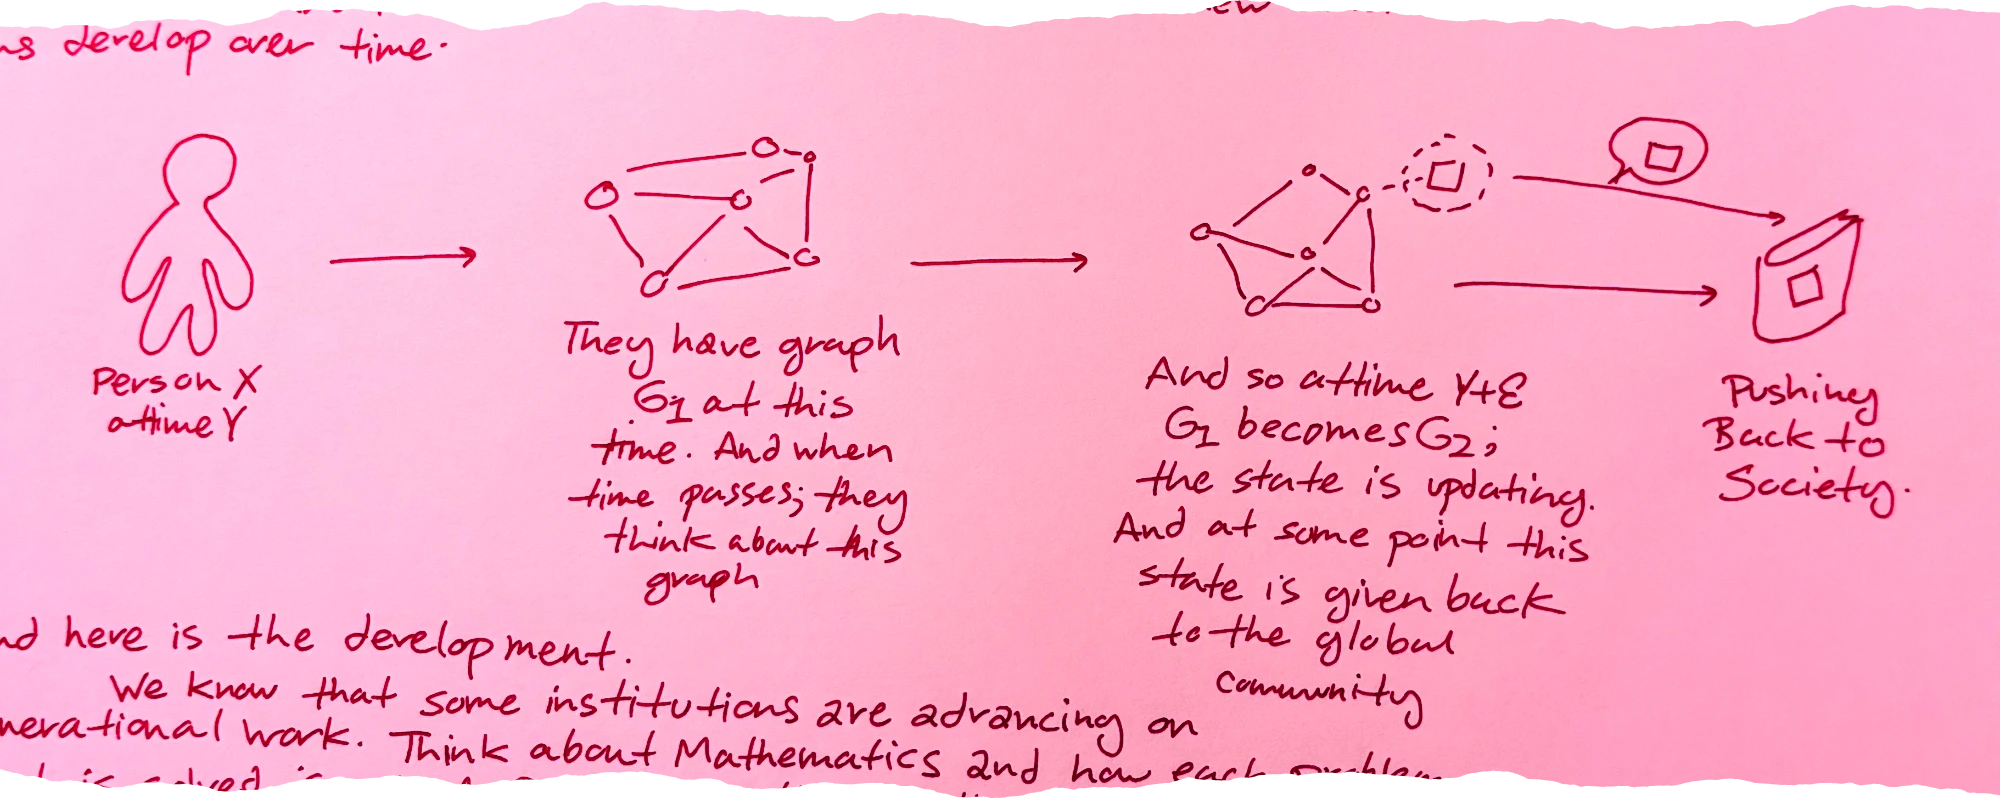 ns develop over time.
Person X
at time Y
They have graph
G1 at this
time. And when
time passes; they
think about this
graph
And so at time Y+ε
G1 becomes G2;
the state is updating.
And at some point this
state is given back
to the global
community
Pushing
Back to
Society.
nd here is the development.
We know that some institutions are advancing on
nerational work. Think about Mathematics and how each problem
is solved